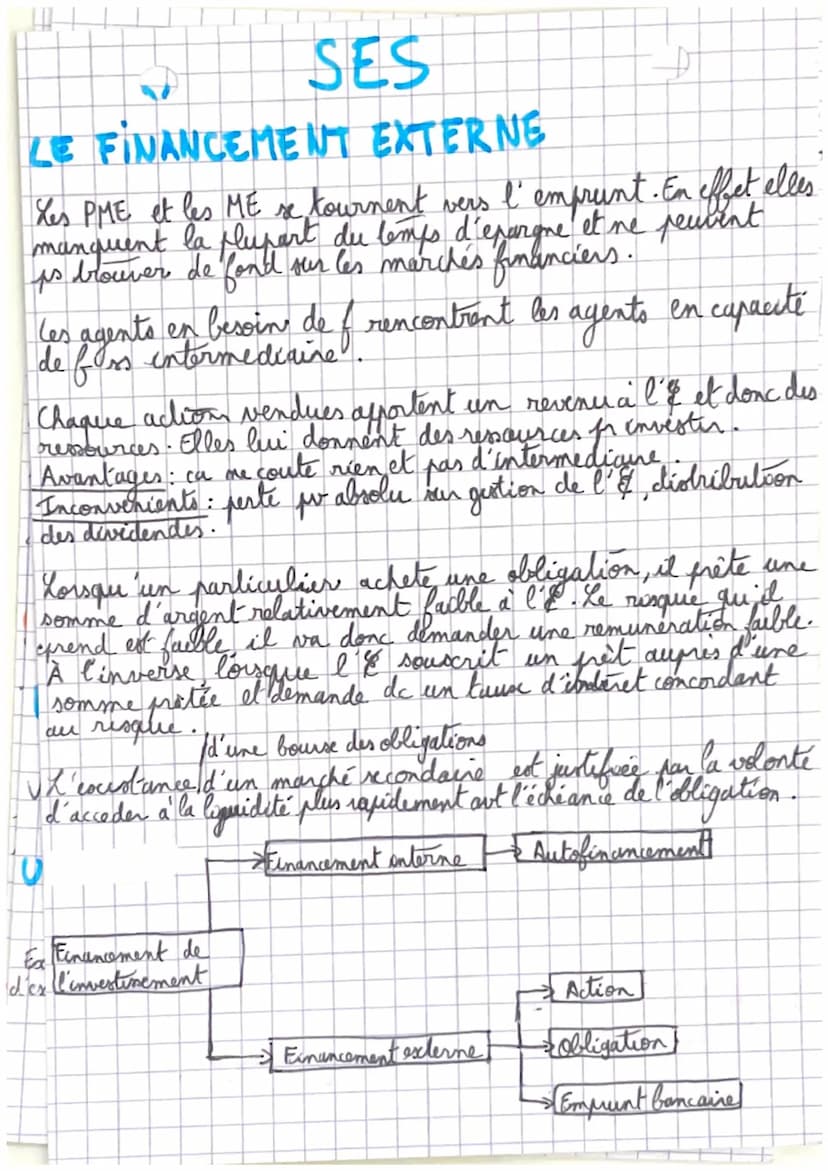 SES
LE FINANCEMENT EXTERNE
Les PME et les ME se tournent vers l'emprunt. En effet elles
manquent la plupart du temps d'epargne et ne peuvent
ps trouver de fond sur les marchés financiers.
Les agents en besoins de f rencontrent les agents en capacité
de f ss intermediaire.
Chaque action vendues apportent un revenu à l'E et donc des
ressources. Elles lui donnent des ressources pr investir.
Avantages : ca ne coute rien et pas d'intermediaire.
Inconvénients : perte pv absolu sur gestion de l'E, distribution
des dividendes.
Lorsqu'un particulier achete une obligation, il prête une
somme d'argent relativement faible à l'E. Le risque qu'il
prend est faible, il va donc demander une remunération faible.
À l'inverse, lorsque l'E souscrit un prêt auprès d'une
somme prêtée et demande dc un taux d'intéret concordant
au risque.
d'une bourse des obligations
L'existance d'un marché secondaire est justifiée par la volonté
d'acceder à la liquidité plus rapidement avt l'échéance de l'obligation.
Financement interne Autofinancement
Ex Financement de
d'ex l'investissement
Action
Financement externe Obligation
Emprunt bancaire